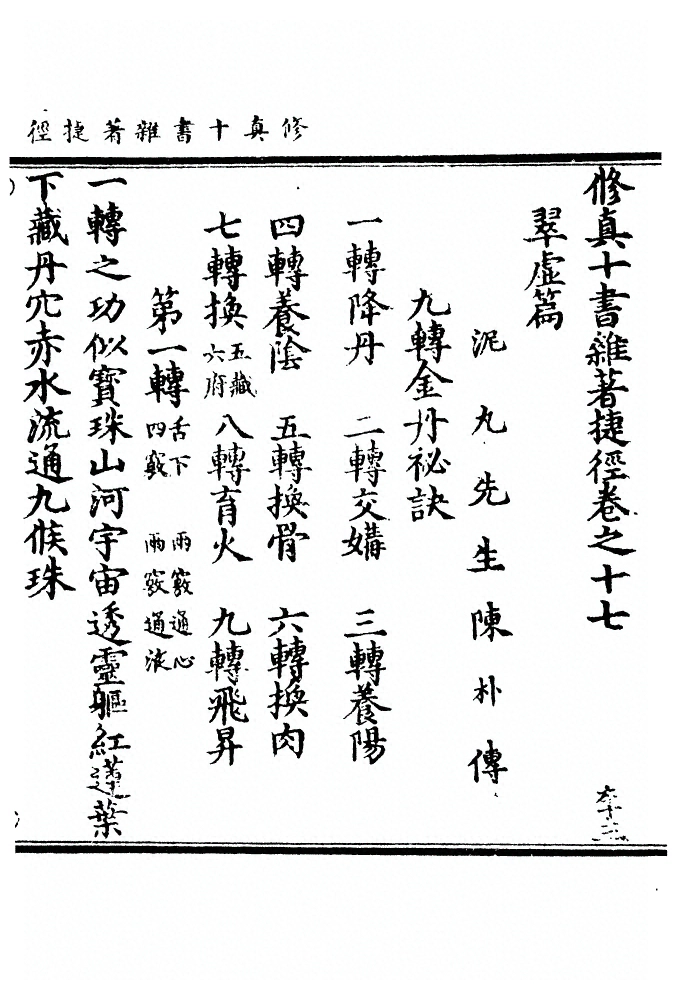 修真十書雜著捷徑
修真十書雜著捷徑卷之十七
李三
翠虛篇
泥丸先生陳朴傳
九轉金丹祕訣
一轉降丹 二轉交媾 三轉養陽
四轉養陰 五轉換骨 六轉換肉
七轉換五藏六府 八轉育火 九轉飛昇
第一轉舌下四竅 兩竅通心 兩竅通液
一轉之功似寶珠山河宇宙透靈軀紅蓮葉
下藏丹穴赤水流通九候珠